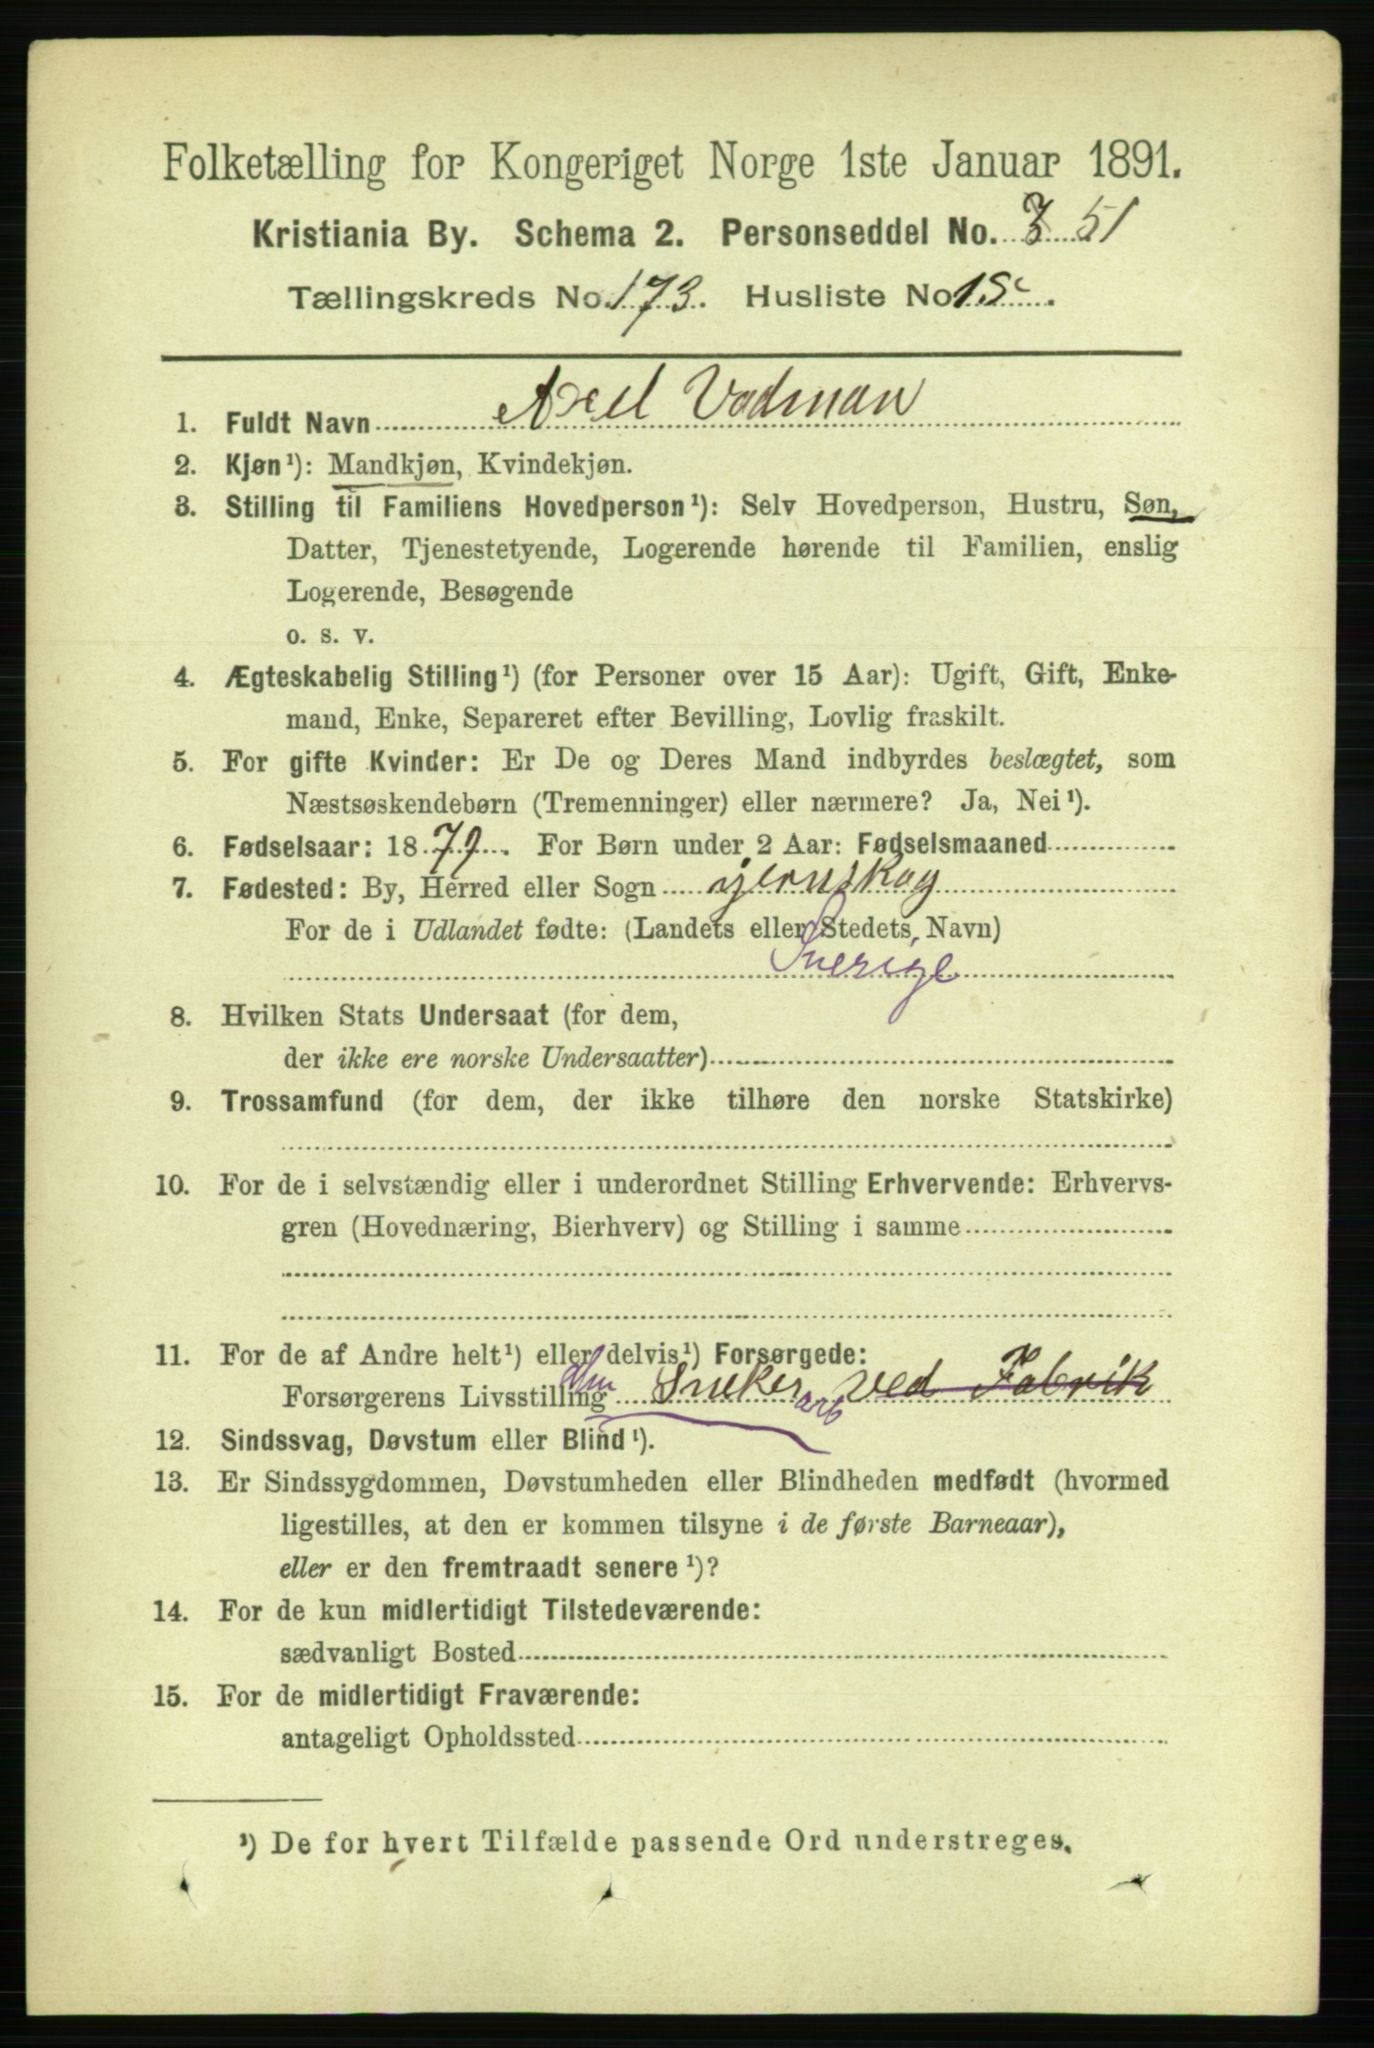 Folketælling for Kongeriget Norge 1ste Januar 1891.
Kristiania By. Schema 2. Personseddel No. 51
Tællingskreds No. 173. Husliste No. 15c.
1. Fuldt Navn Axel Vadman
2. Kjøn¹): Mandkjøn, Kvindekjøn.
3. Stilling til Familiens Hovedperson¹): Selv Hovedperson, Hustru, Søn,
Datter, Tjenestetyende, Logerende hørende til Familien, enslig
Logerende, Besøgende
o. s. v.
4. Ægteskabelig Stilling¹) (for Personer over 15 Aar): Ugift, Gift, Enke-
mand, Enke, Separeret efter Bevilling, Lovlig fraskilt.
5. For gifte Kvinder: Er De og Deres Mand indbyrdes beslægtet, som
Næstsøskendebørn (Tremenninger) eller nærmere? Ja, Nei¹).
6. Fødselsaar: 1879. For Børn under 2 Aar: Fødselsmaaned
7. Fødested: By, Herred eller Sogn jernskog
For de i Udlandet fødte: (Landets eller Stedets Navn)
Sverige
8. Hvilken Stats Undersaat (for dem,
der ikke ere norske Undersaatter)
9. Trossamfund (for dem, der ikke tilhøre den norske Statskirke)
10. For de i selvstændig eller i underordnet Stilling Erhvervende: Erhvervs-
gren (Hovednæring, Bierhverv) og Stilling i samme
11. For de af Andre helt¹) eller delvis¹) Forsørgede:
Forsørgerens Livsstilling Sneker arb ved Fabrik
12. Sindssvag, Døvstum eller Blind¹).
13. Er Sindssygdommen, Døvstumheden eller Blindheden medfødt (hvormed
ligestilles, at den er kommen tilsyne i de første Barneaar),
eller er den fremtraadt senere¹)?
14. For de kun midlertidigt Tilstedeværende:
sædvanligt Bosted
15. For de midlertidigt Fraværende:
antageligt Opholdssted
¹) De for hvert Tilfælde passende Ord understreges.